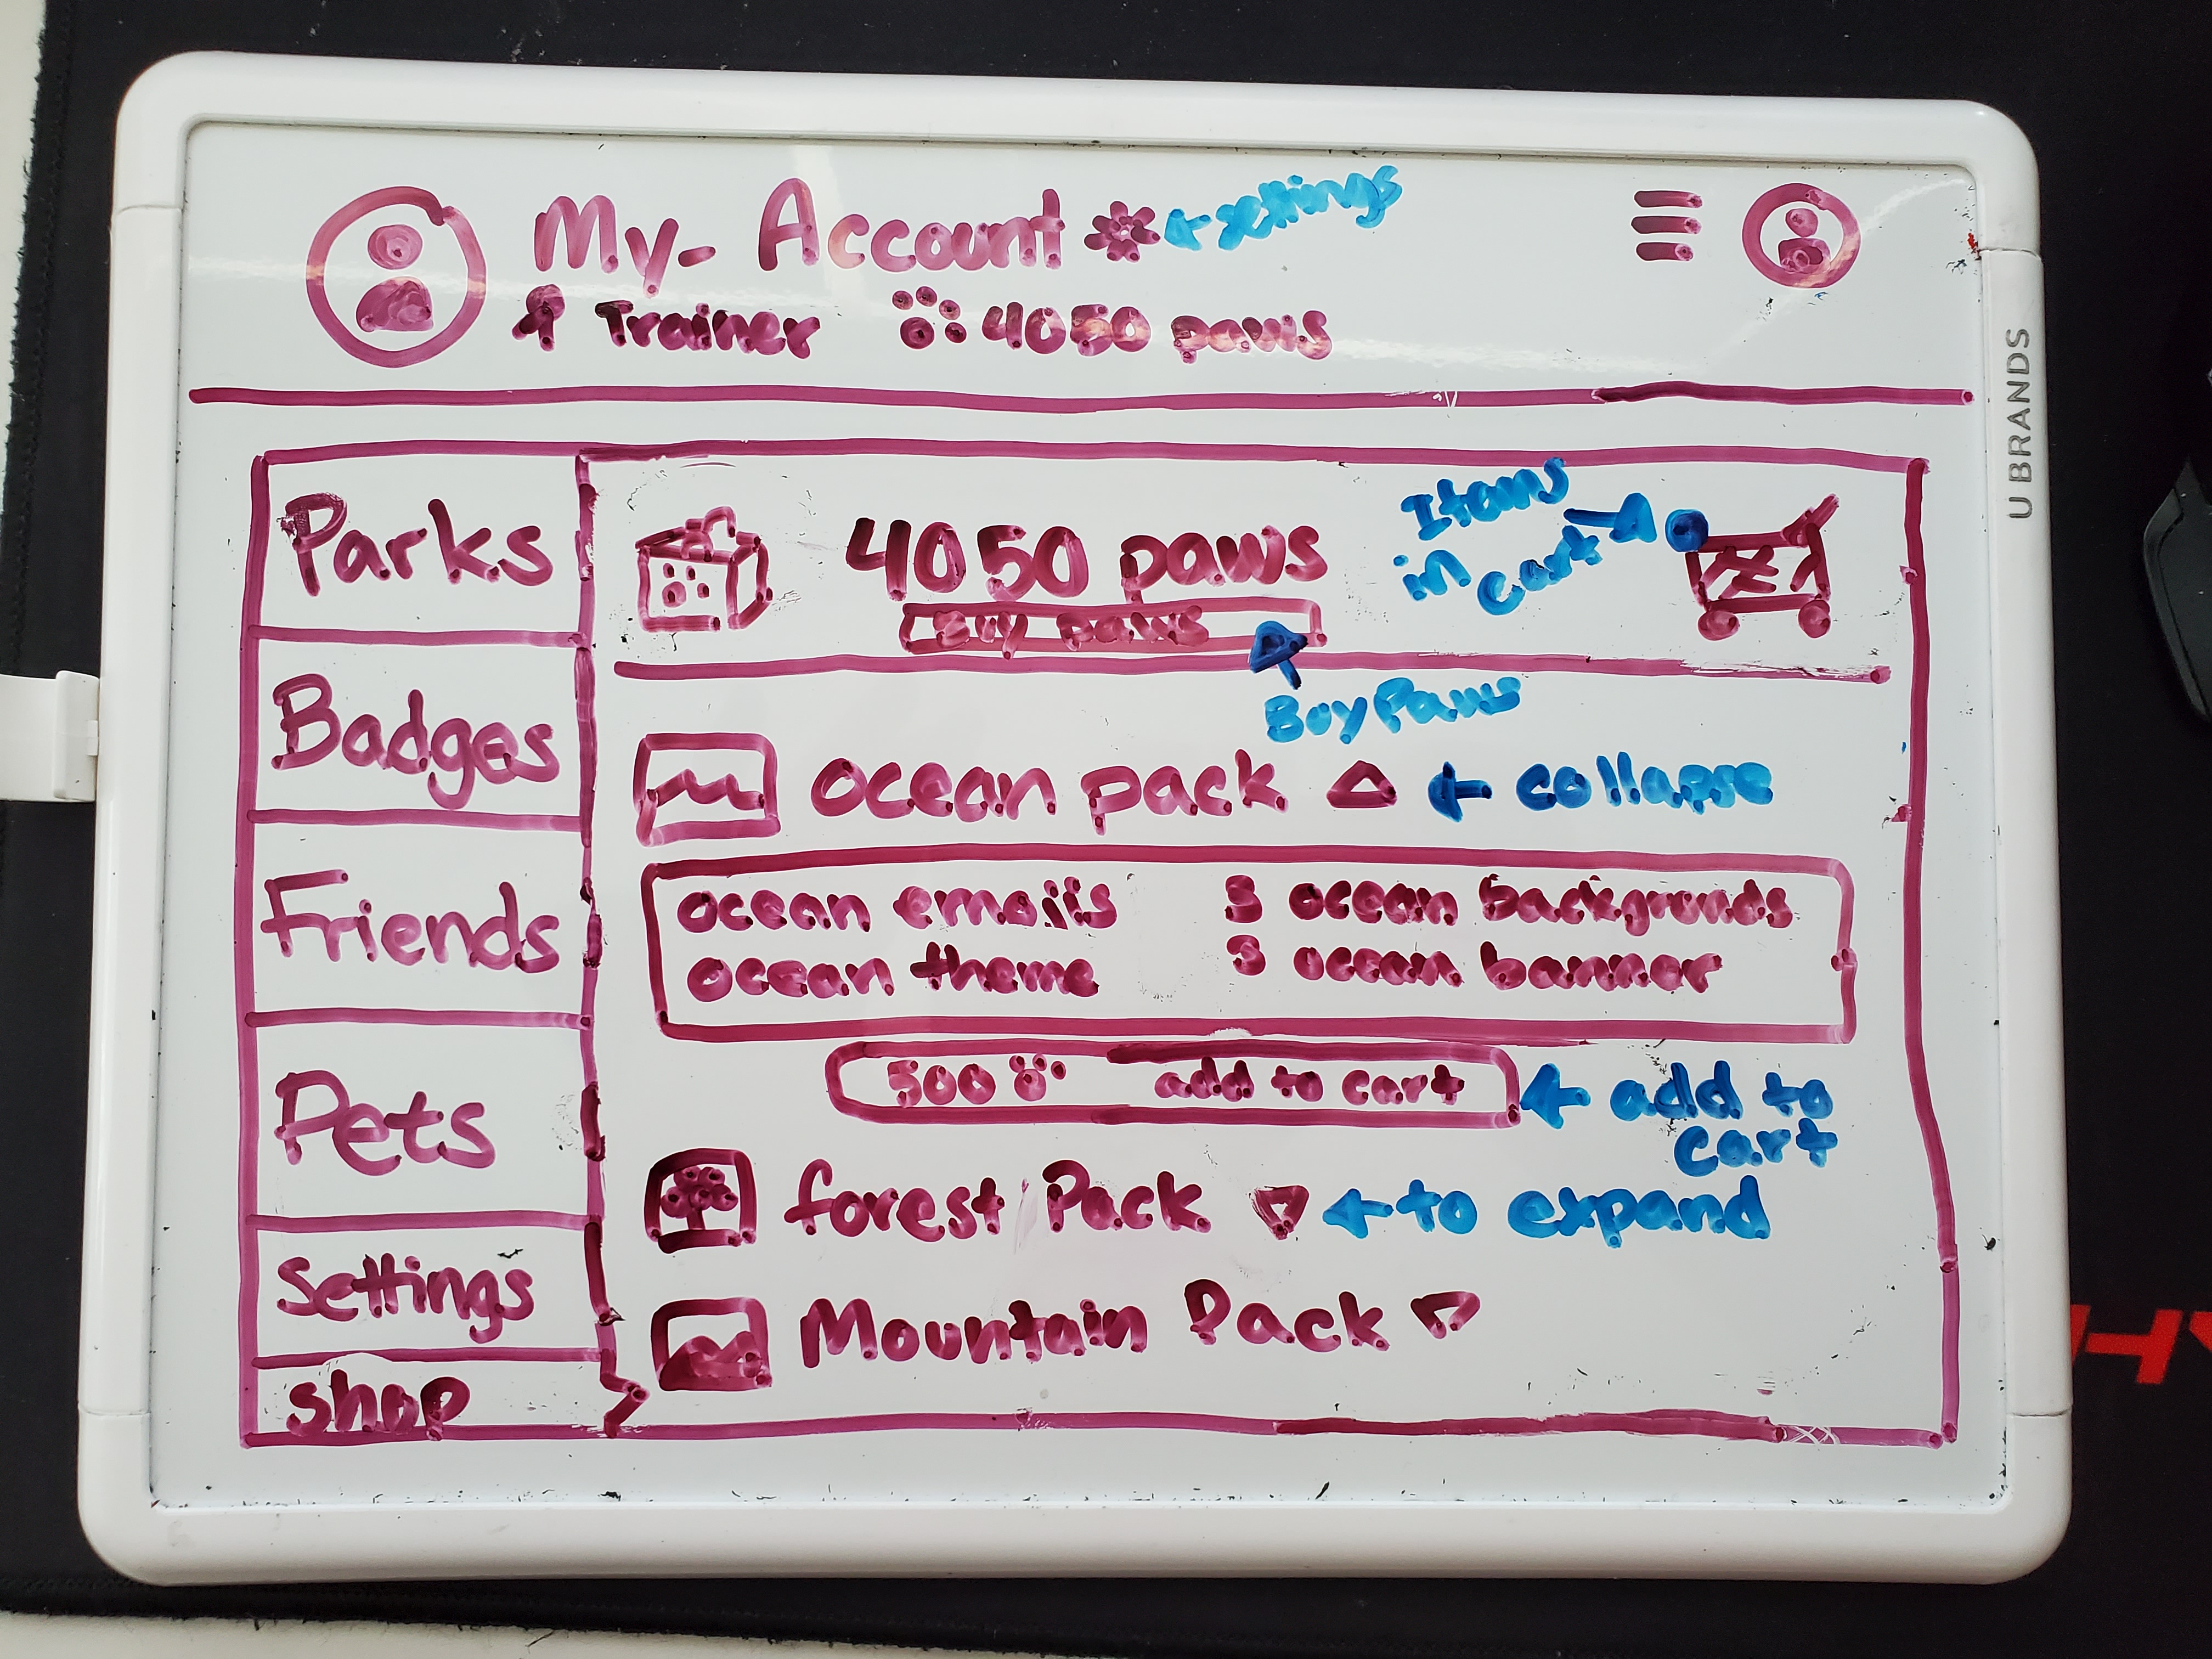 My- Account
settings
Trainer
4050 paws
U BRANDS
Parks
Badges
Friends
Pets
Settings
shop
4050 paws
Buy paws
Items
in
cart
Buy Paws
ocean pack
collapse
ocean emojis
3 ocean backgrounds
ocean theme
3 ocean banner
500
add to cart
add to
cart
forest Pack
to expand
Mountain Pack